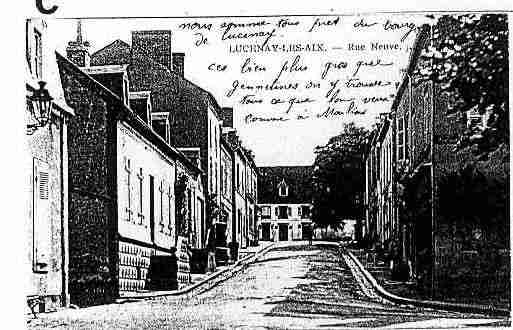 C
nous sommes tous pret du bourg
de Lucenay.
LUCENAY-LES-AIX. — Rue Neuve.
ces bien plus gros que
Gennetines on y trouve
tous ce que l'on veux
comme à Moulins